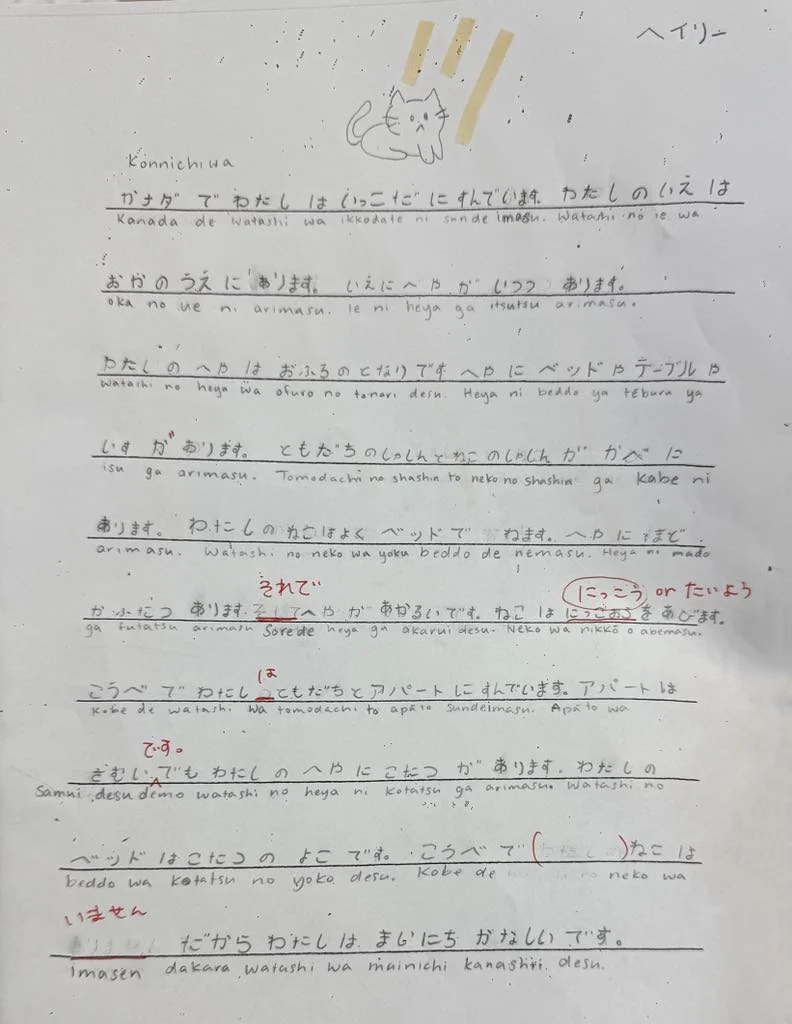 ヘイリー
Konnichiwa
カナダ で わたし は いっこだ に すんでいます. わたし の いえ は
Kanada de watashi wa ikkodate ni sunde imasu. Watashi no ie wa
おか の うえ に あります。 いえに へ や が いつつ あります。
oka no ue ni arimasu. ie ni heya ga itsutsu arimasu.
わたし の へや は おふろ の となり です へ や に ベッド や テーブル や
watashi no heya wa ofuro no tonari desu. Heya ni beddo ya tēburu ya
いす が あります。 ともだち の しゃしん と ねこ の しゃじん が かべ に
isu ga arimasu. Tomodachi no shashin to neko no shashin ga kabe ni
あります。 わたし の ねこ は よく ベッド で ねます。 へや に まど
arimasu. Watashi no neko wa yoku beddo de nemasu. Heya ni mado
それで にっこう or たいよう
が ふたつ あります. そして へや が あかるい です。 ねこ は にっこおう を あびます。
ga futatsu arimasu Sorede heya ga akarui desu. Neko wa nikkō o abemasu.
は
こうべ で わたし っ ともだち と アパート に すんでいます。 アパート は
Kobe de watashi wa tomodachi to apāto sundeimasu. Apāto wa
です。
さむい でも わたし の へや に こたつ が あります. わたし の
Samui desu demo watashi no heya ni kotatsu ga arimasu. Watashi no
ベッド は こたつ の よこ です。 こうべ で ( ) ねこ は
beddo wa kotatsu no yoko desu. Kobe de neko wa
いません
だから わたし は まいにち かなしい です。
imasen dakara watashi wa mainichi kanashii desu.